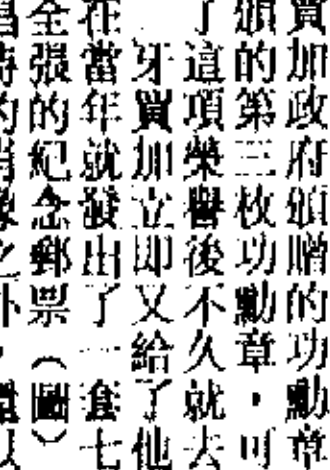 買加政府頒贈的功勳章
頒的第三枚功勳章，可
了這項榮譽後不久就去
牙買加立即又給了他
在當年就發出了一套七
全張的紀念郵票（圖）